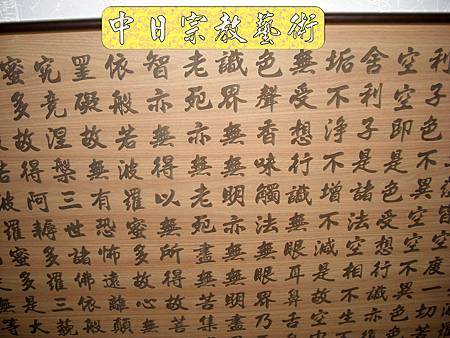 中日宗教藝術
空度一切
利子色不異空空不異色
空空即是色受想行識亦
舍利子是諸法空相不生
垢不淨不增不減是故空
無受想行識無眼耳鼻舌
色聲香味觸法無眼界乃
識界無無明亦無無明盡
老死亦無老死盡無苦集
智亦無得以無所得故菩
依般若波羅蜜多故心無
罣礙故無有恐怖遠離顛
究竟涅槃三世諸佛依般
蜜多故得阿耨多羅三藐
波羅蜜多是大
無等